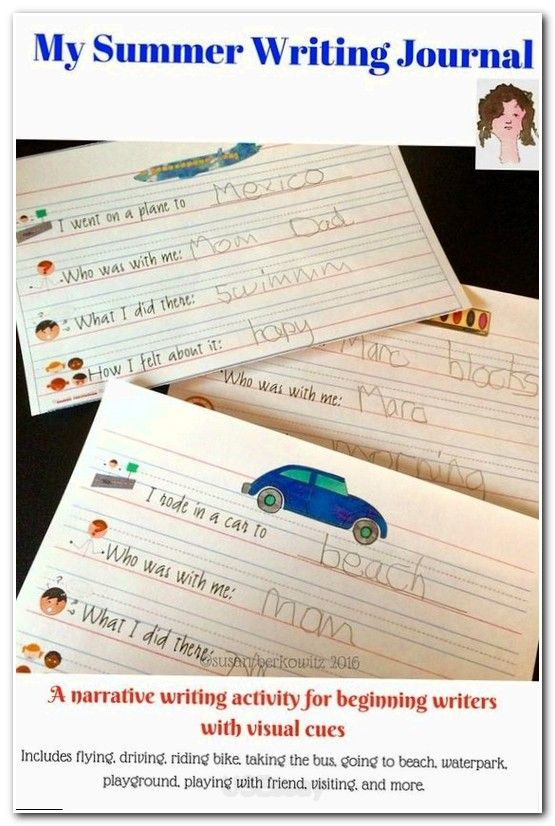 My Summer Writing Journal
I went on a plane to Mexico
Who was with me: Mom Dad
What I did there: Swimmm
How I felt about it: hapy
Marc blocks
Who was with me: Marc
morning
I rode in a car to beach
Who was with me: Mom
What I did there:
©susan berkowitz 2016
A narrative writing activity for beginning writers
with visual cues
Includes flying, driving, riding bike, taking the bus, going to beach, waterpark,
playground, playing with friend, visiting, and more.